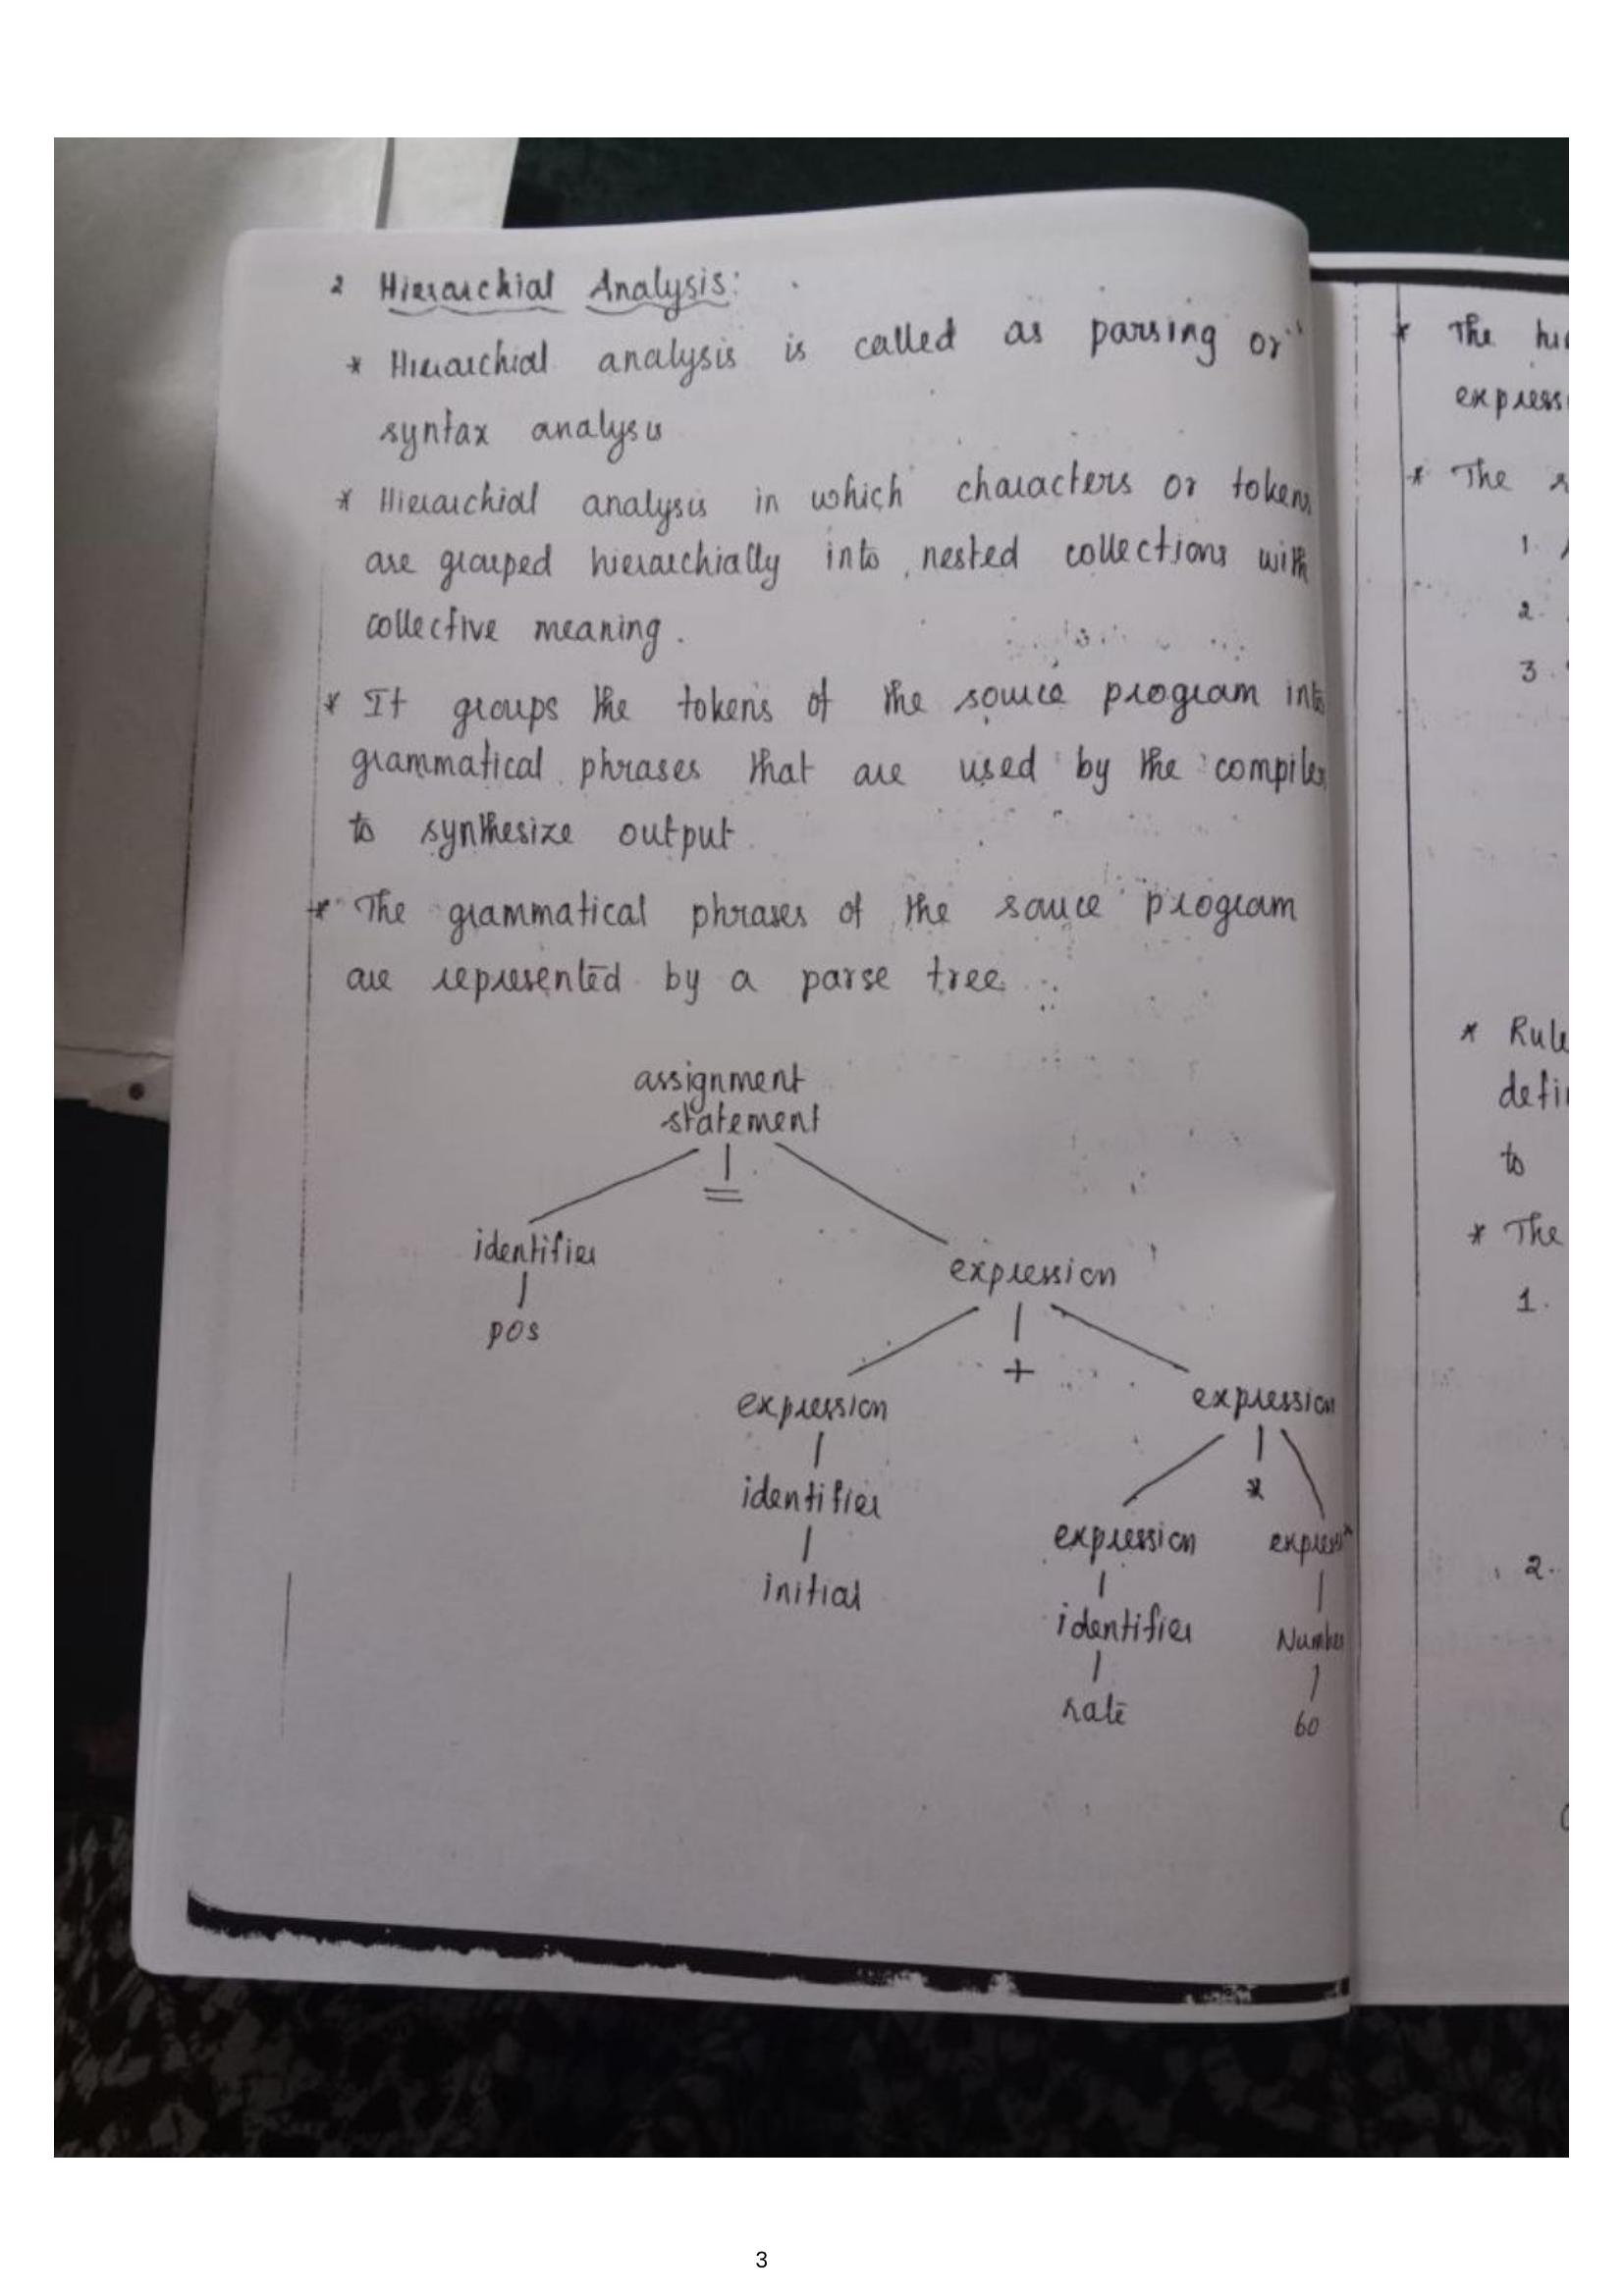 2 Hierarchial Analysis:
* Hierarchial analysis is called as parsing or
syntax analysis
* Hierarchial analysis in which characters or tokens
are grouped hierarchially into nested collections with
collective meaning.
* It groups the tokens of the source program into
grammatical phrases that are used by the compiler
to synthesize output.
* The grammatical phrases of the source program
are represented by a parse tree.
assignment
statement
=
identifier
expression
pos
+
expression
expression
identifier
*
expression
initial
identifier
Number
rate
60
* The
* The
1.
2.
3.
*
to
* The
1.
2.
3